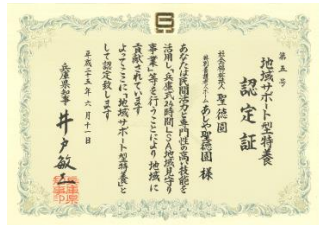 第五号
地域サポート型特養
認定証
社会福祉法人 聖徳園
特別養護老人ホーム あしや聖徳園 様
あなたは民間活力と専門性の高い技能を
活用し「兵庫式24時間LSA地域見守り
事業」等を行うことにより地域に
貢献されています
よってここに「地域サポート型特養」と
して認定致します
平成二十五年 六月十一日
兵庫県知事 井戸敏三